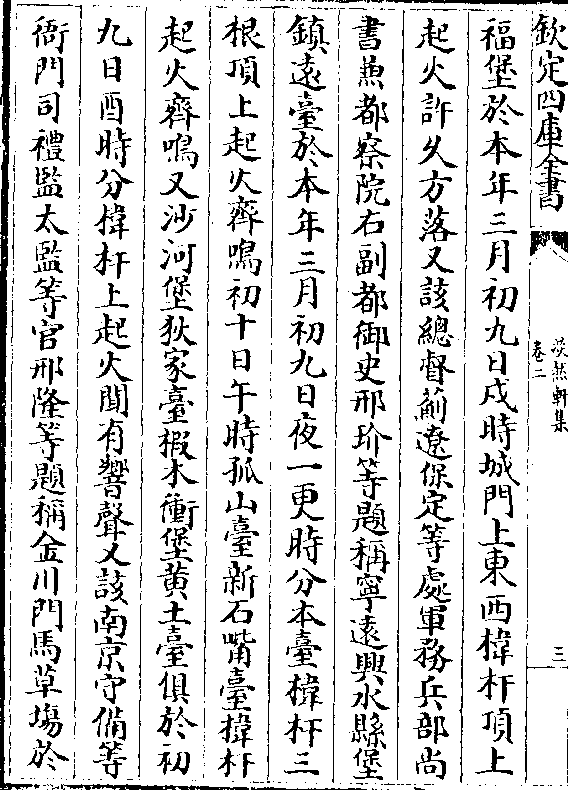 欽定四庫全書
炎然軒集
卷二
三
福堡於本年三月初九日戌時城門上東西桅杆頂上
起火許久方落又該總督薊遼保定等處軍務兵部尚
書兼都察院右副都御史邢玠等題稱寧遠興水縣堡
鎮遠臺於本年三月初九日夜一更時分本臺桅杆三
根頂上起火齊鳴初十日午時孤山臺新石嘴臺桅杆
起火齊鳴又沙河堡狄家臺椴木衝堡黄土臺俱於初
九日酉時分桅杆上起火聞有響聲又該南京守備等
衙門司禮監太監等官邢隆等題稱金川門馬草場於